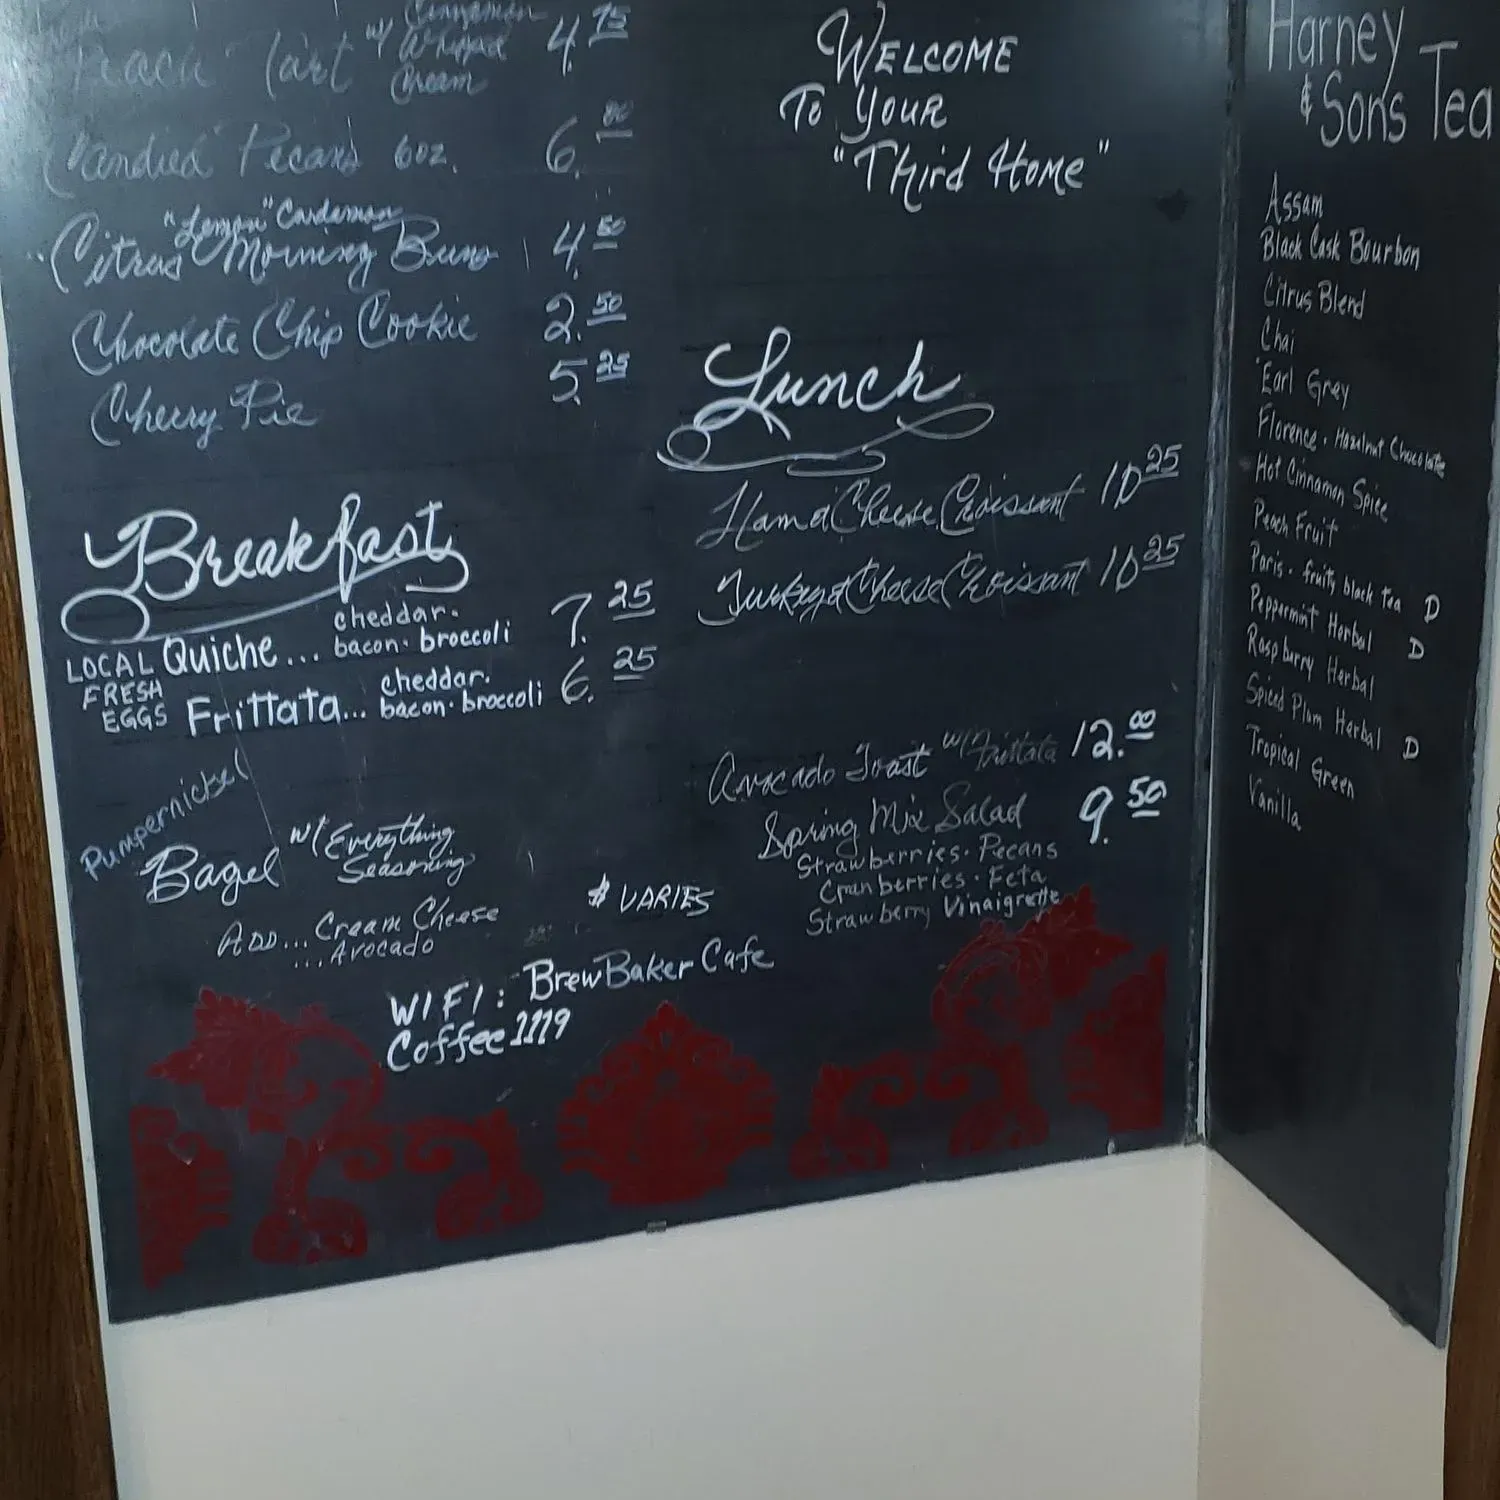 Peach Tart w/ Cinnamon Whipped Cream 4.75
Candied Pecans 6oz. 6.00
"Lemon" Cardamon
Citrus Morning Buns 4.50
Chocolate Chip Cookie 2.50
Cherry Pie 5.25
Breakfast
LOCAL FRESH EGGS
Quiche... cheddar. bacon. broccoli 7.25
Frittata... cheddar. bacon. broccoli 6.25
Pumpernickel
Bagel w/ Everything Seasoning
Add... Cream Cheese
...Avocado
$ VARIES
WIFI: BrewBaker Cafe
Coffee1119
WELCOME
To YOUR
"Third Home"
Lunch
Ham & Cheese Croissant 10 25
Turkey & Cheese Croissant 10 25
Avocado Toast w/ Frittata 12.00
Spring Mix Salad 9.50
Strawberries. Pecans
Cranberries. Feta
Strawberry Vinaigrette
Harney
& Sons Tea
Assam
Black Cask Bourbon
Citrus Blend
Chai
Earl Grey
Florence. Hazelnut Chocolate
Hot Cinnamon Spice
Peach Fruit
Paris. fruity black tea D
Peppermint Herbal D
Raspberry Herbal
Spiced Plum Herbal D
Tropical Green
Vanilla